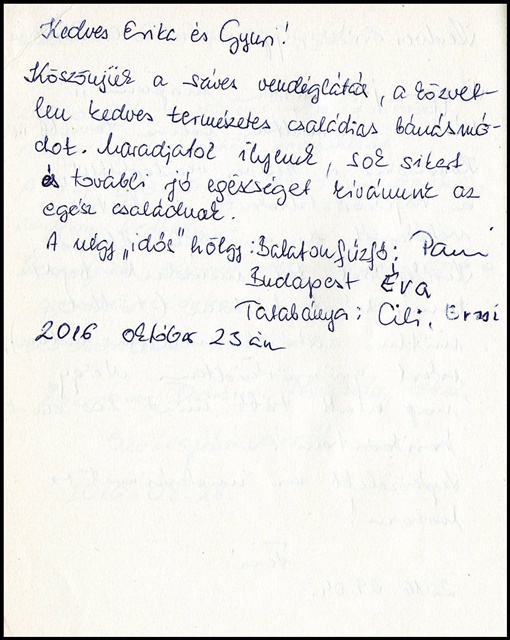 Kedves Erika és Gyuri!
Köszönjük a szíves vendéglátás, a közvet-
len kedves természetes családias bánásmó-
dot. Maradjatok ilyenek, sok sikert
és további jó egészséget kívánunk az
egész családnak.
A négy „idős" hölgy: Balatonfűzfő: Pami
Budapest Éva
Tatabánya: Cili, Erzsi
2016 október 23án